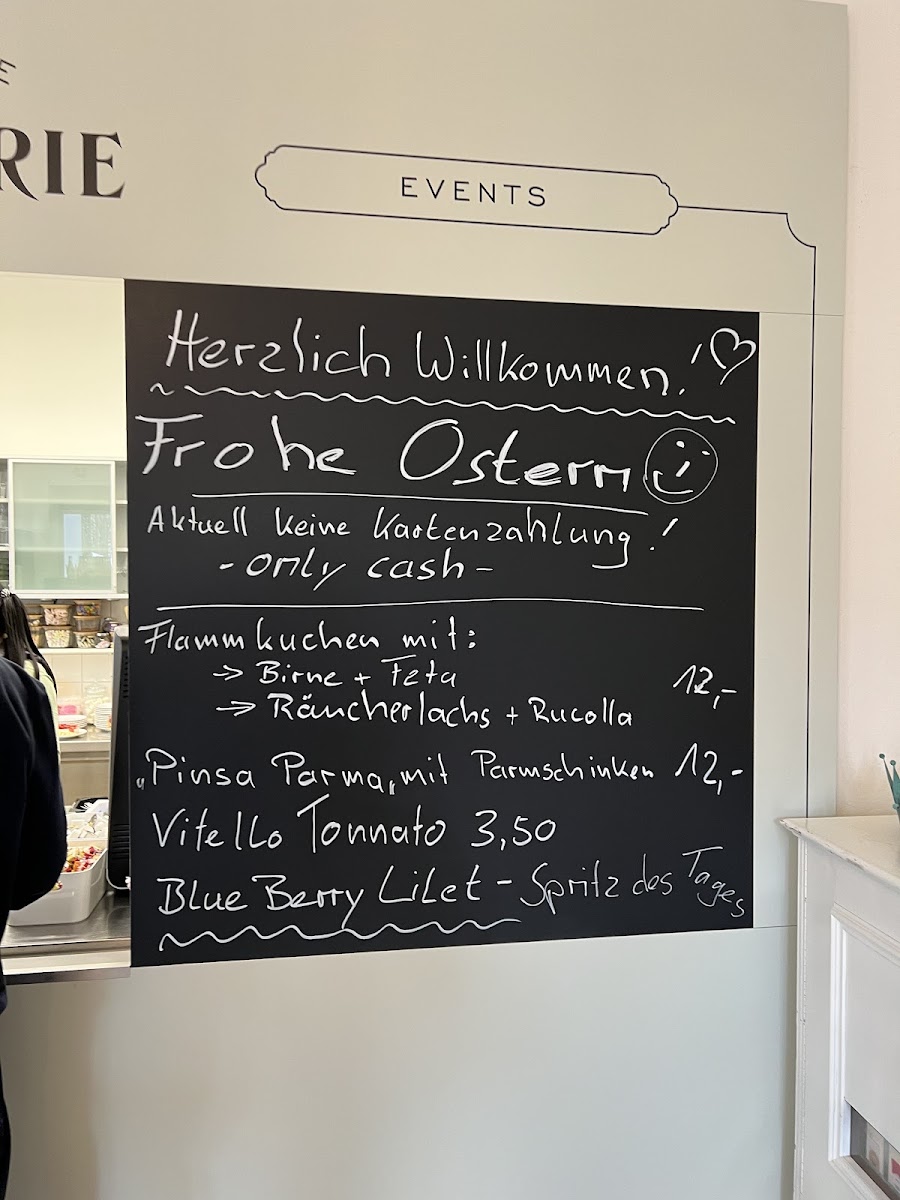 E
RIE
EVENTS
Herzlich Willkommen!
Frohe Ostern
Aktuell keine Kartenzahlung!
- only cash -
Flammkuchen mit:
→ Birne + Feta
12,-
→ Räucherlachs + Rucolla
"Pinsa Parma" mit Parmschinken 12,-
Vitello Tonnato 3,50
Blue Berry Lilet - Spritz des Tages